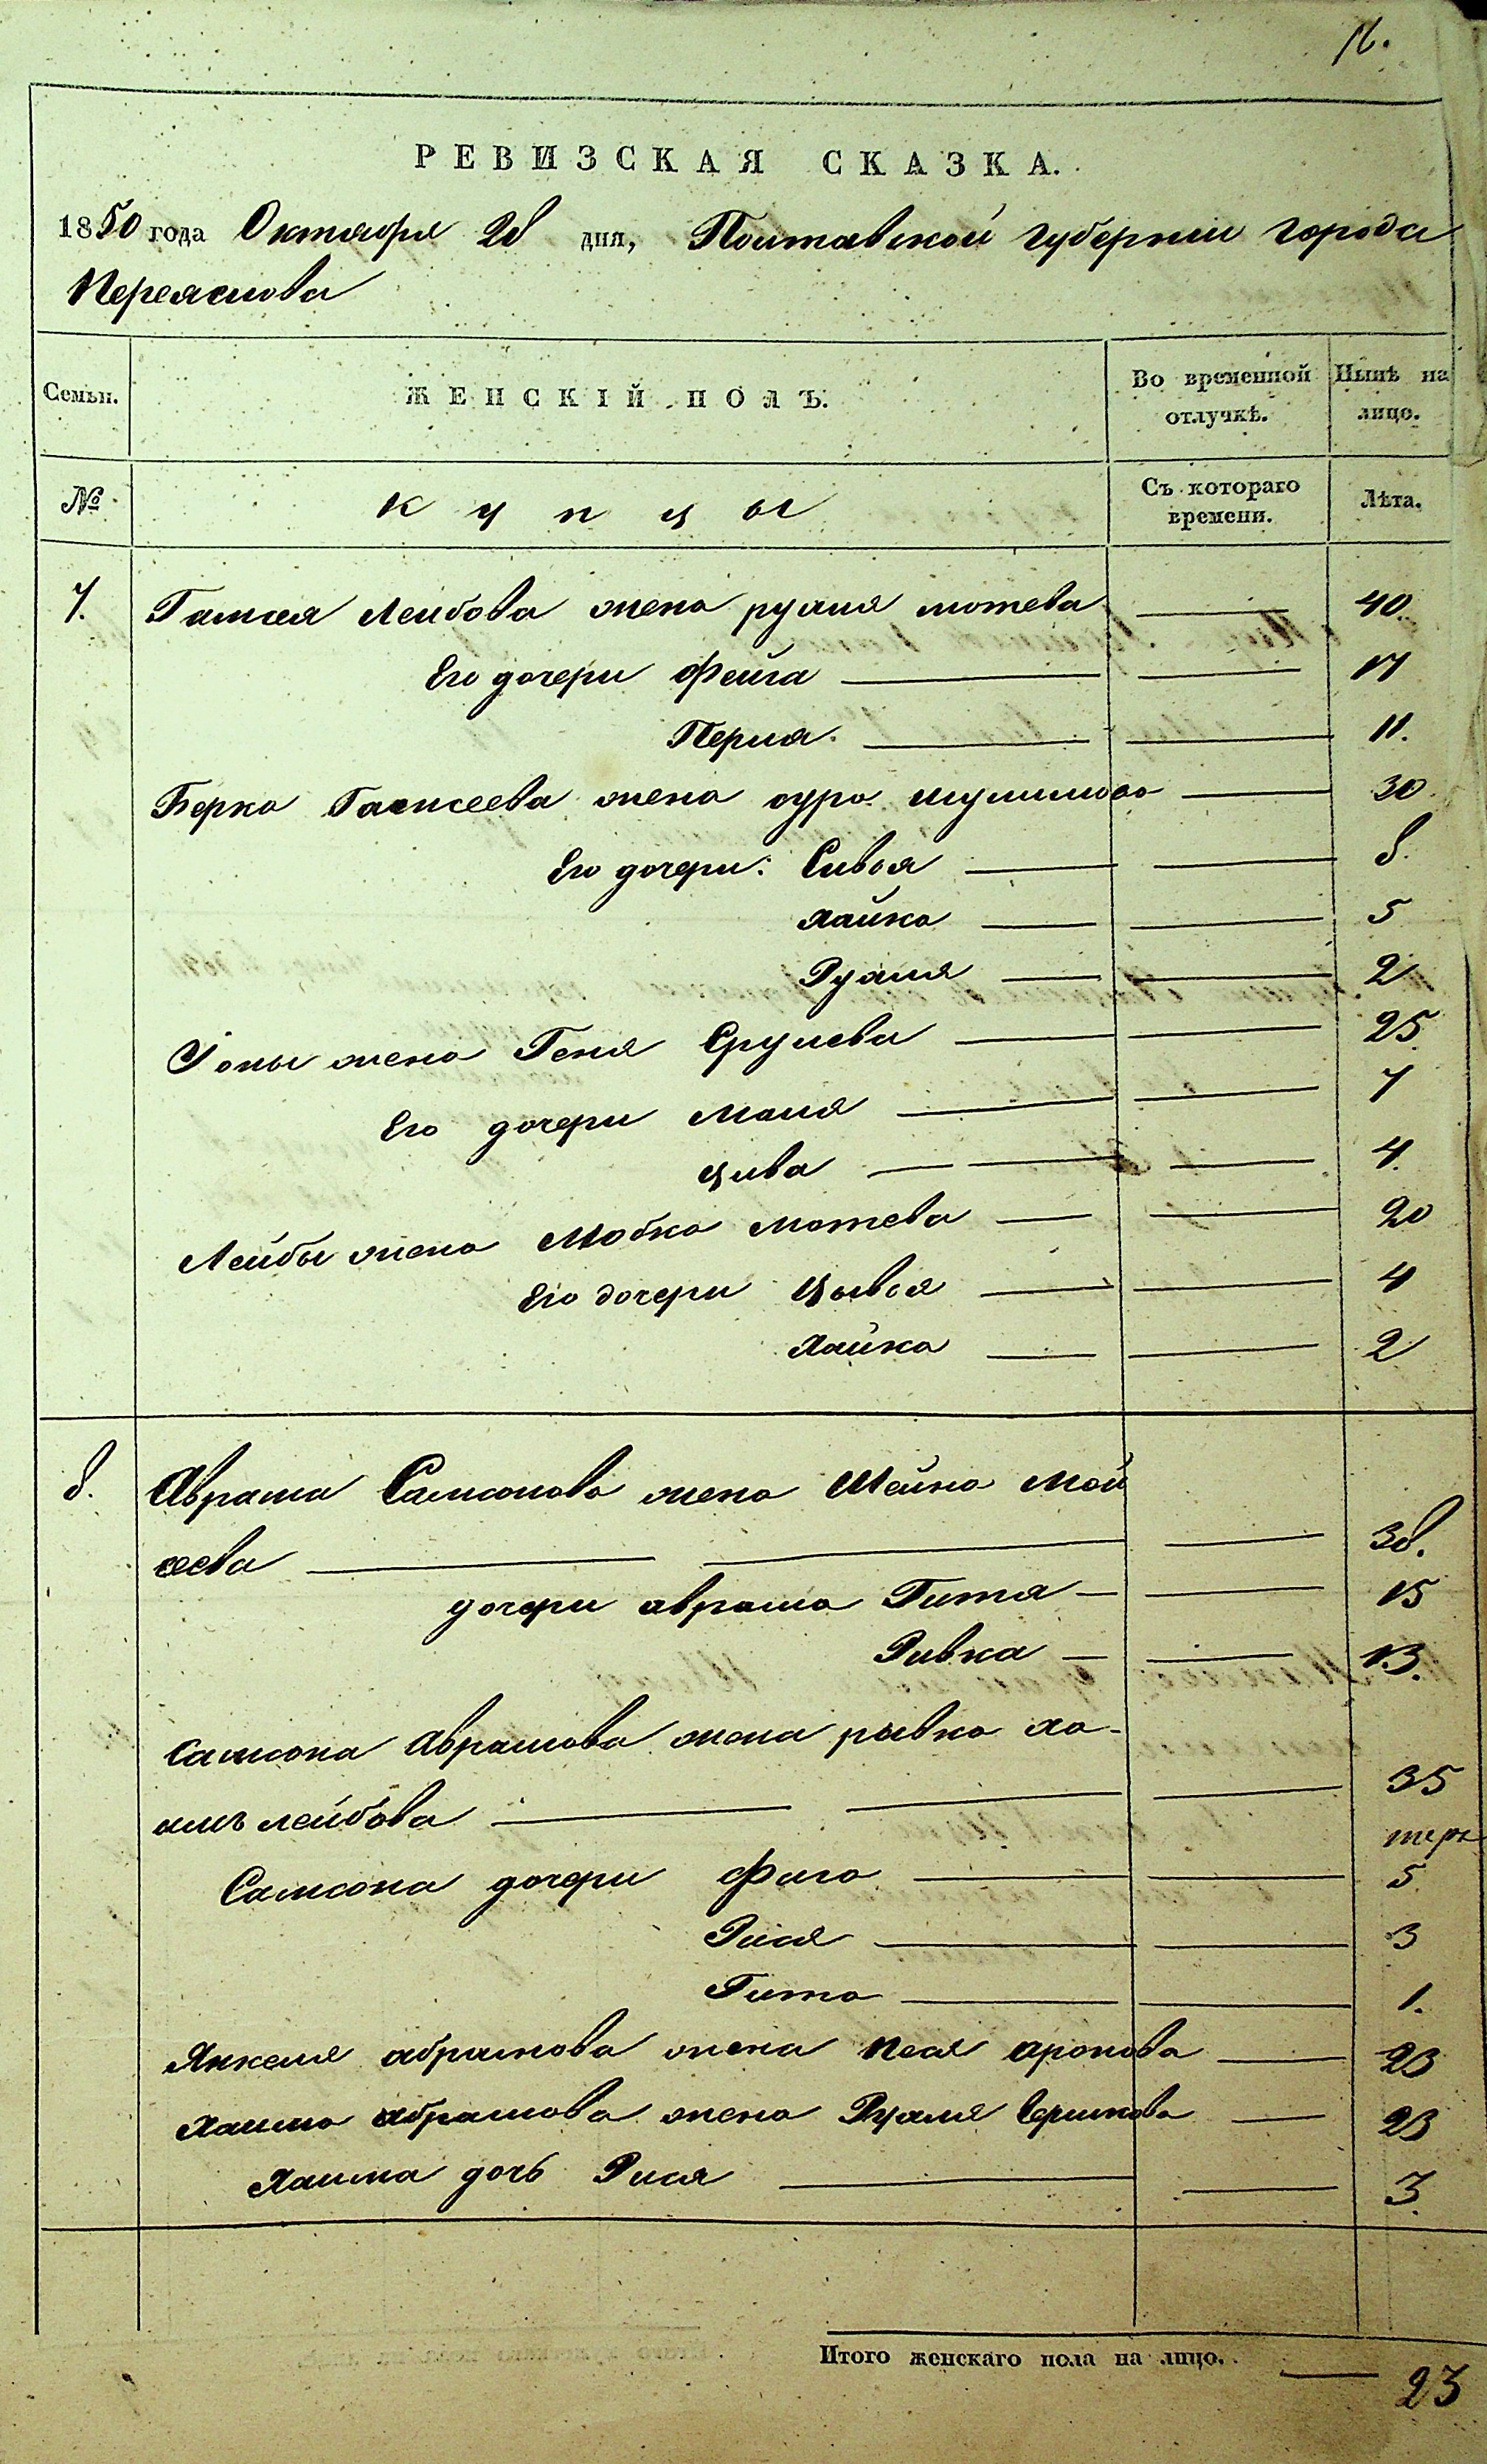 16.
РЕВИЗСКАЯ СКАЗКА.
1850 года Октября 28 дня, Полтавской губерніи города
Переяслова
Семьи. ЖЕНСКІЙ ПОЛЪ. Во временной отлучкѣ. Нынѣ на лицо.
№ Купцы Съ котораго времени. Лѣта.
7. Гамшея Лейбова жена рухля мотева 40.
Его дочери Фейга 17
Перля 11.
Берка Гамшеева жена сура шулимова 30
Его дочери: Сивья 8.
Хайка 5
Рухля 2
Іоны жена Геня Срулева 25
Его дочери Маля 7
Цива 4.
Лейбы жена Мобка Мотева 20
Его дочери Цывья 4
Хайка 2
8. Аврама Самсонова жена Шейна Мой
сеева 38.
дочери аврама Гитя 15
Ривка 13.
Самсона Аврамова жена рывка ха-
имъ лейбова 35
Самсона дочери Фига 5
Рися 3
Гита 1.
Янкеля абрамова жена Песя аронова 23
Хаима абрамова жена Рухля Бершкова 23
Хаима дочь Рися 3
Итого женскаго пола на лицо. 23